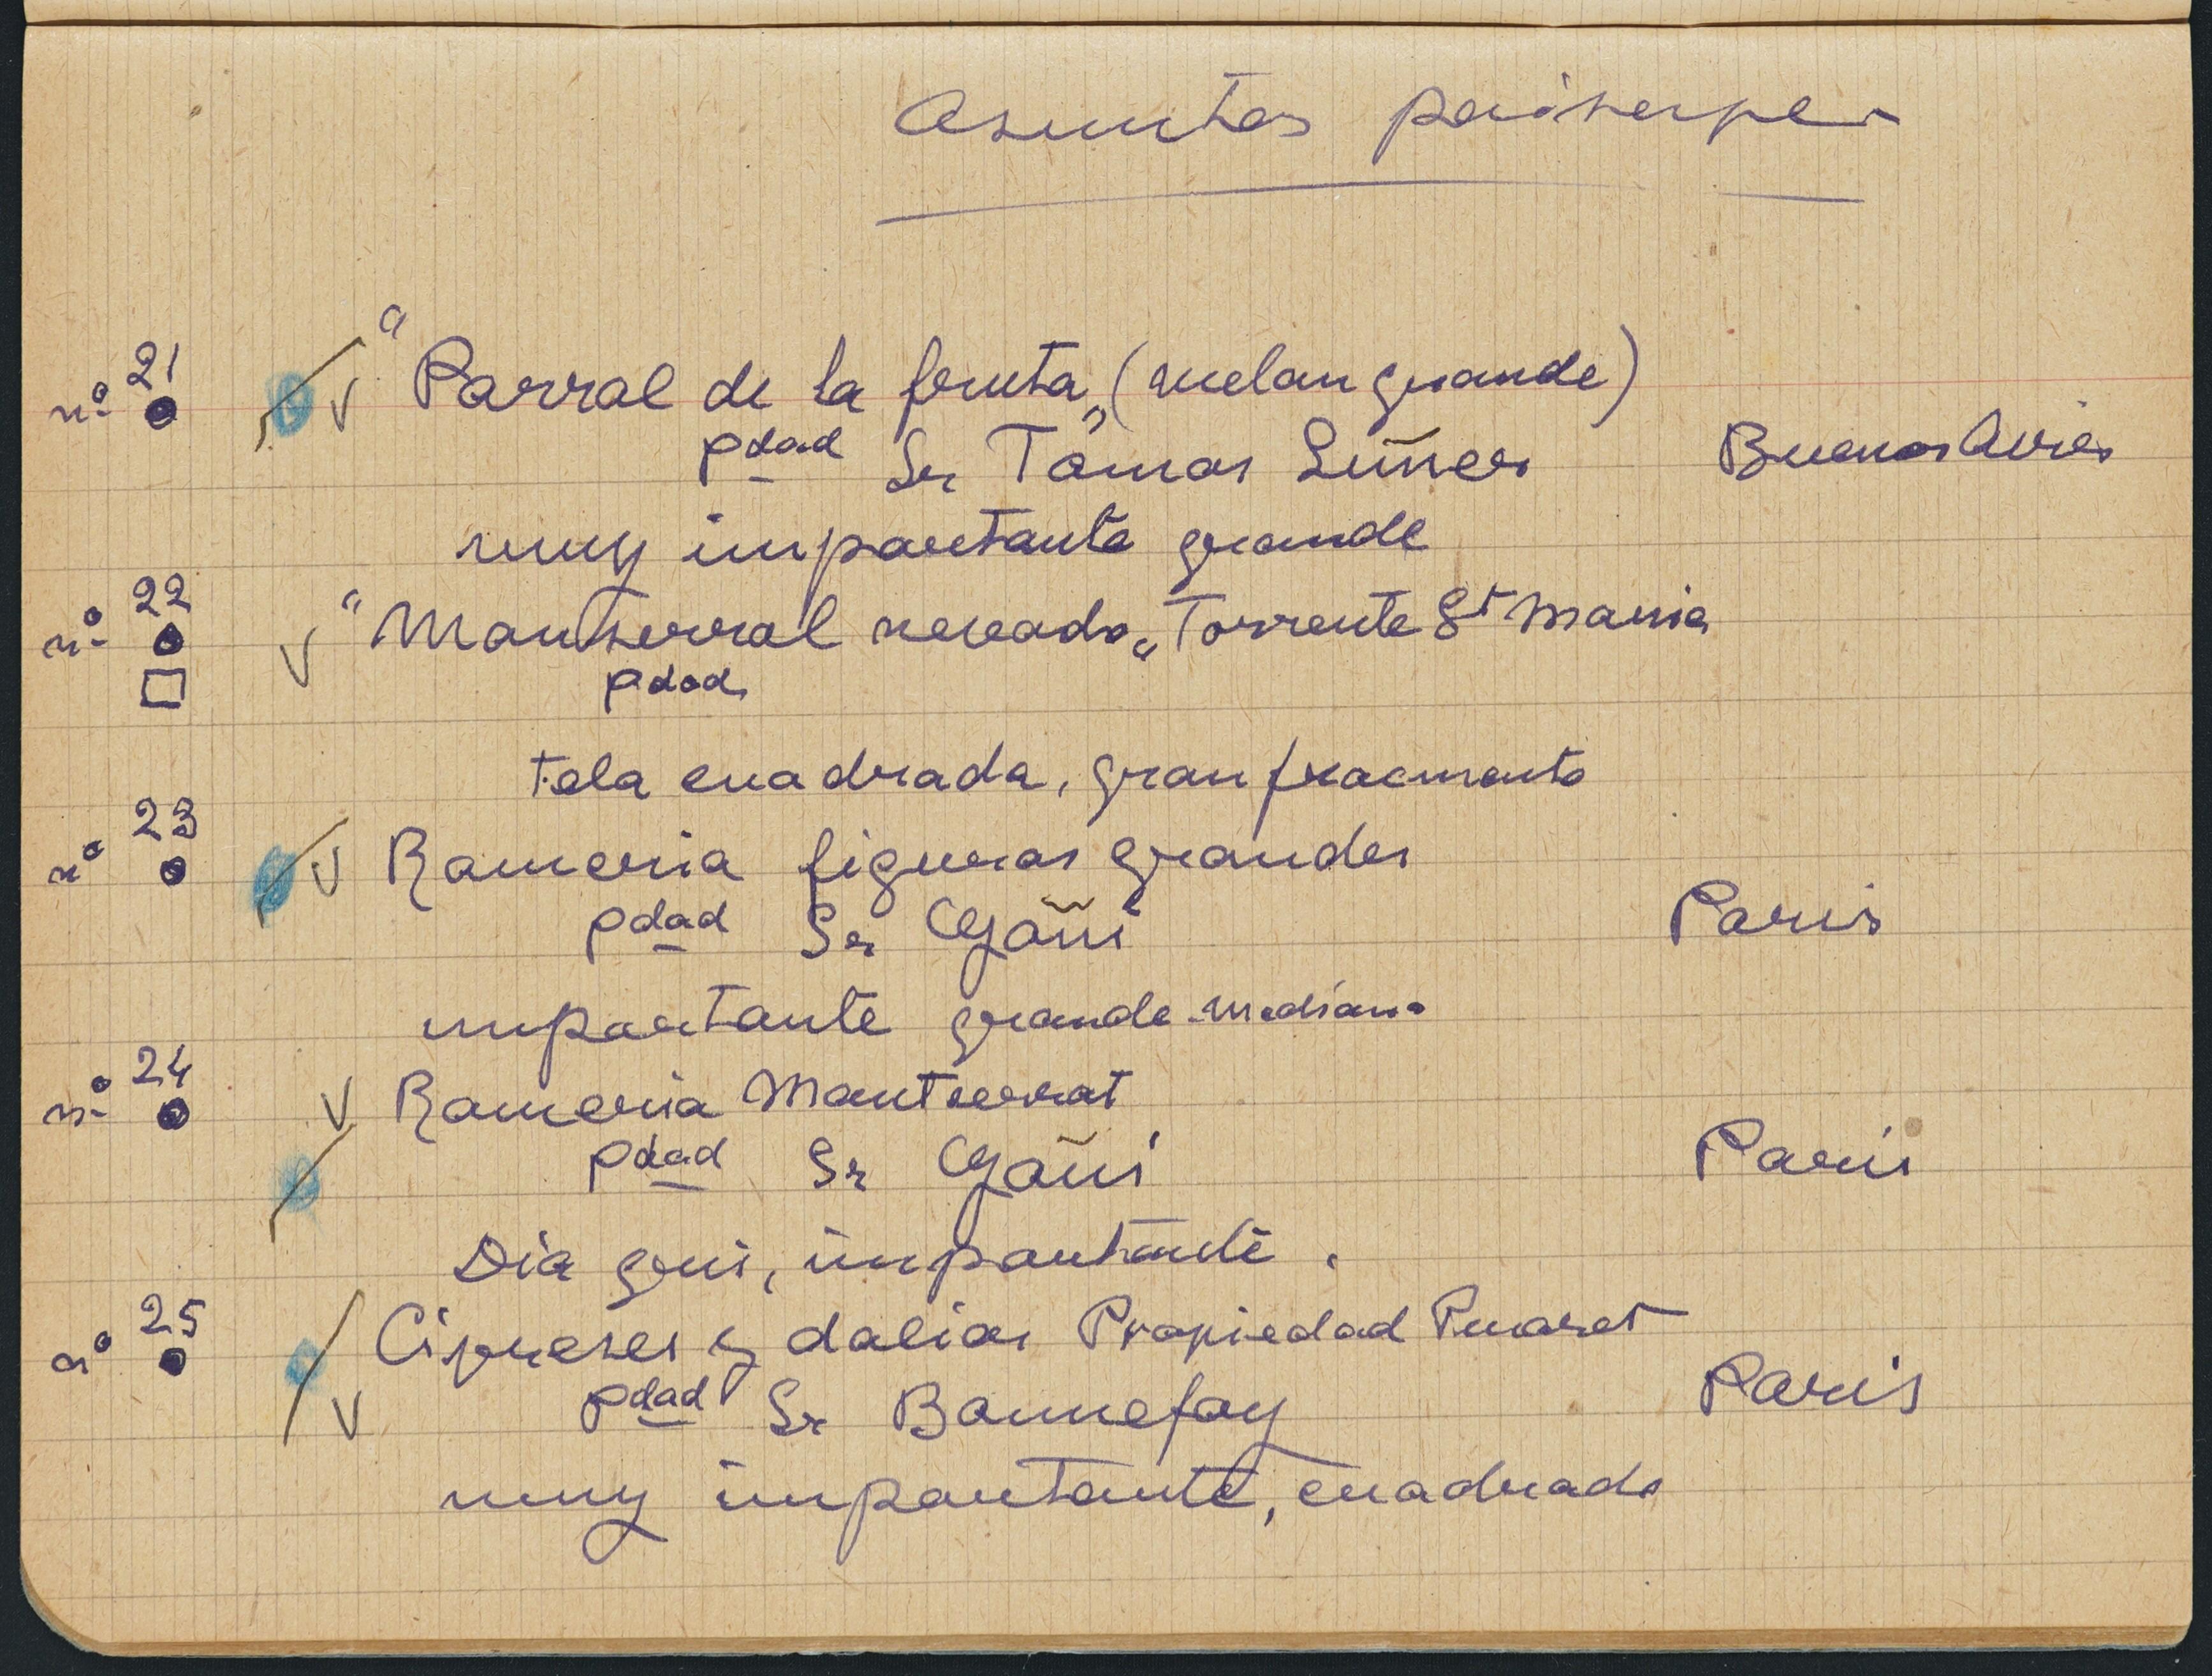 Asuntos paiserpes
nº 21 "Parral de la fruta„ (melon grande)
pdad Sr Tomas Liñer Buenos Aires
muy importante grande
nº 22 "Montserrat nevado„ Torrente St Maria
pdad
tela cuadrada, gran fracmento
nº 23 Rameria figuras grandes
pdad Sr Goñi Paris
importante grande-mediano
nº 24 Rameria Montserrat
pdad Sr Goñi Paris
Dia gris, importante.
nº 25 Cipreses y dalias Propiedad
pdad Sr Bonnefoy Paris
muy importante, cuadrado